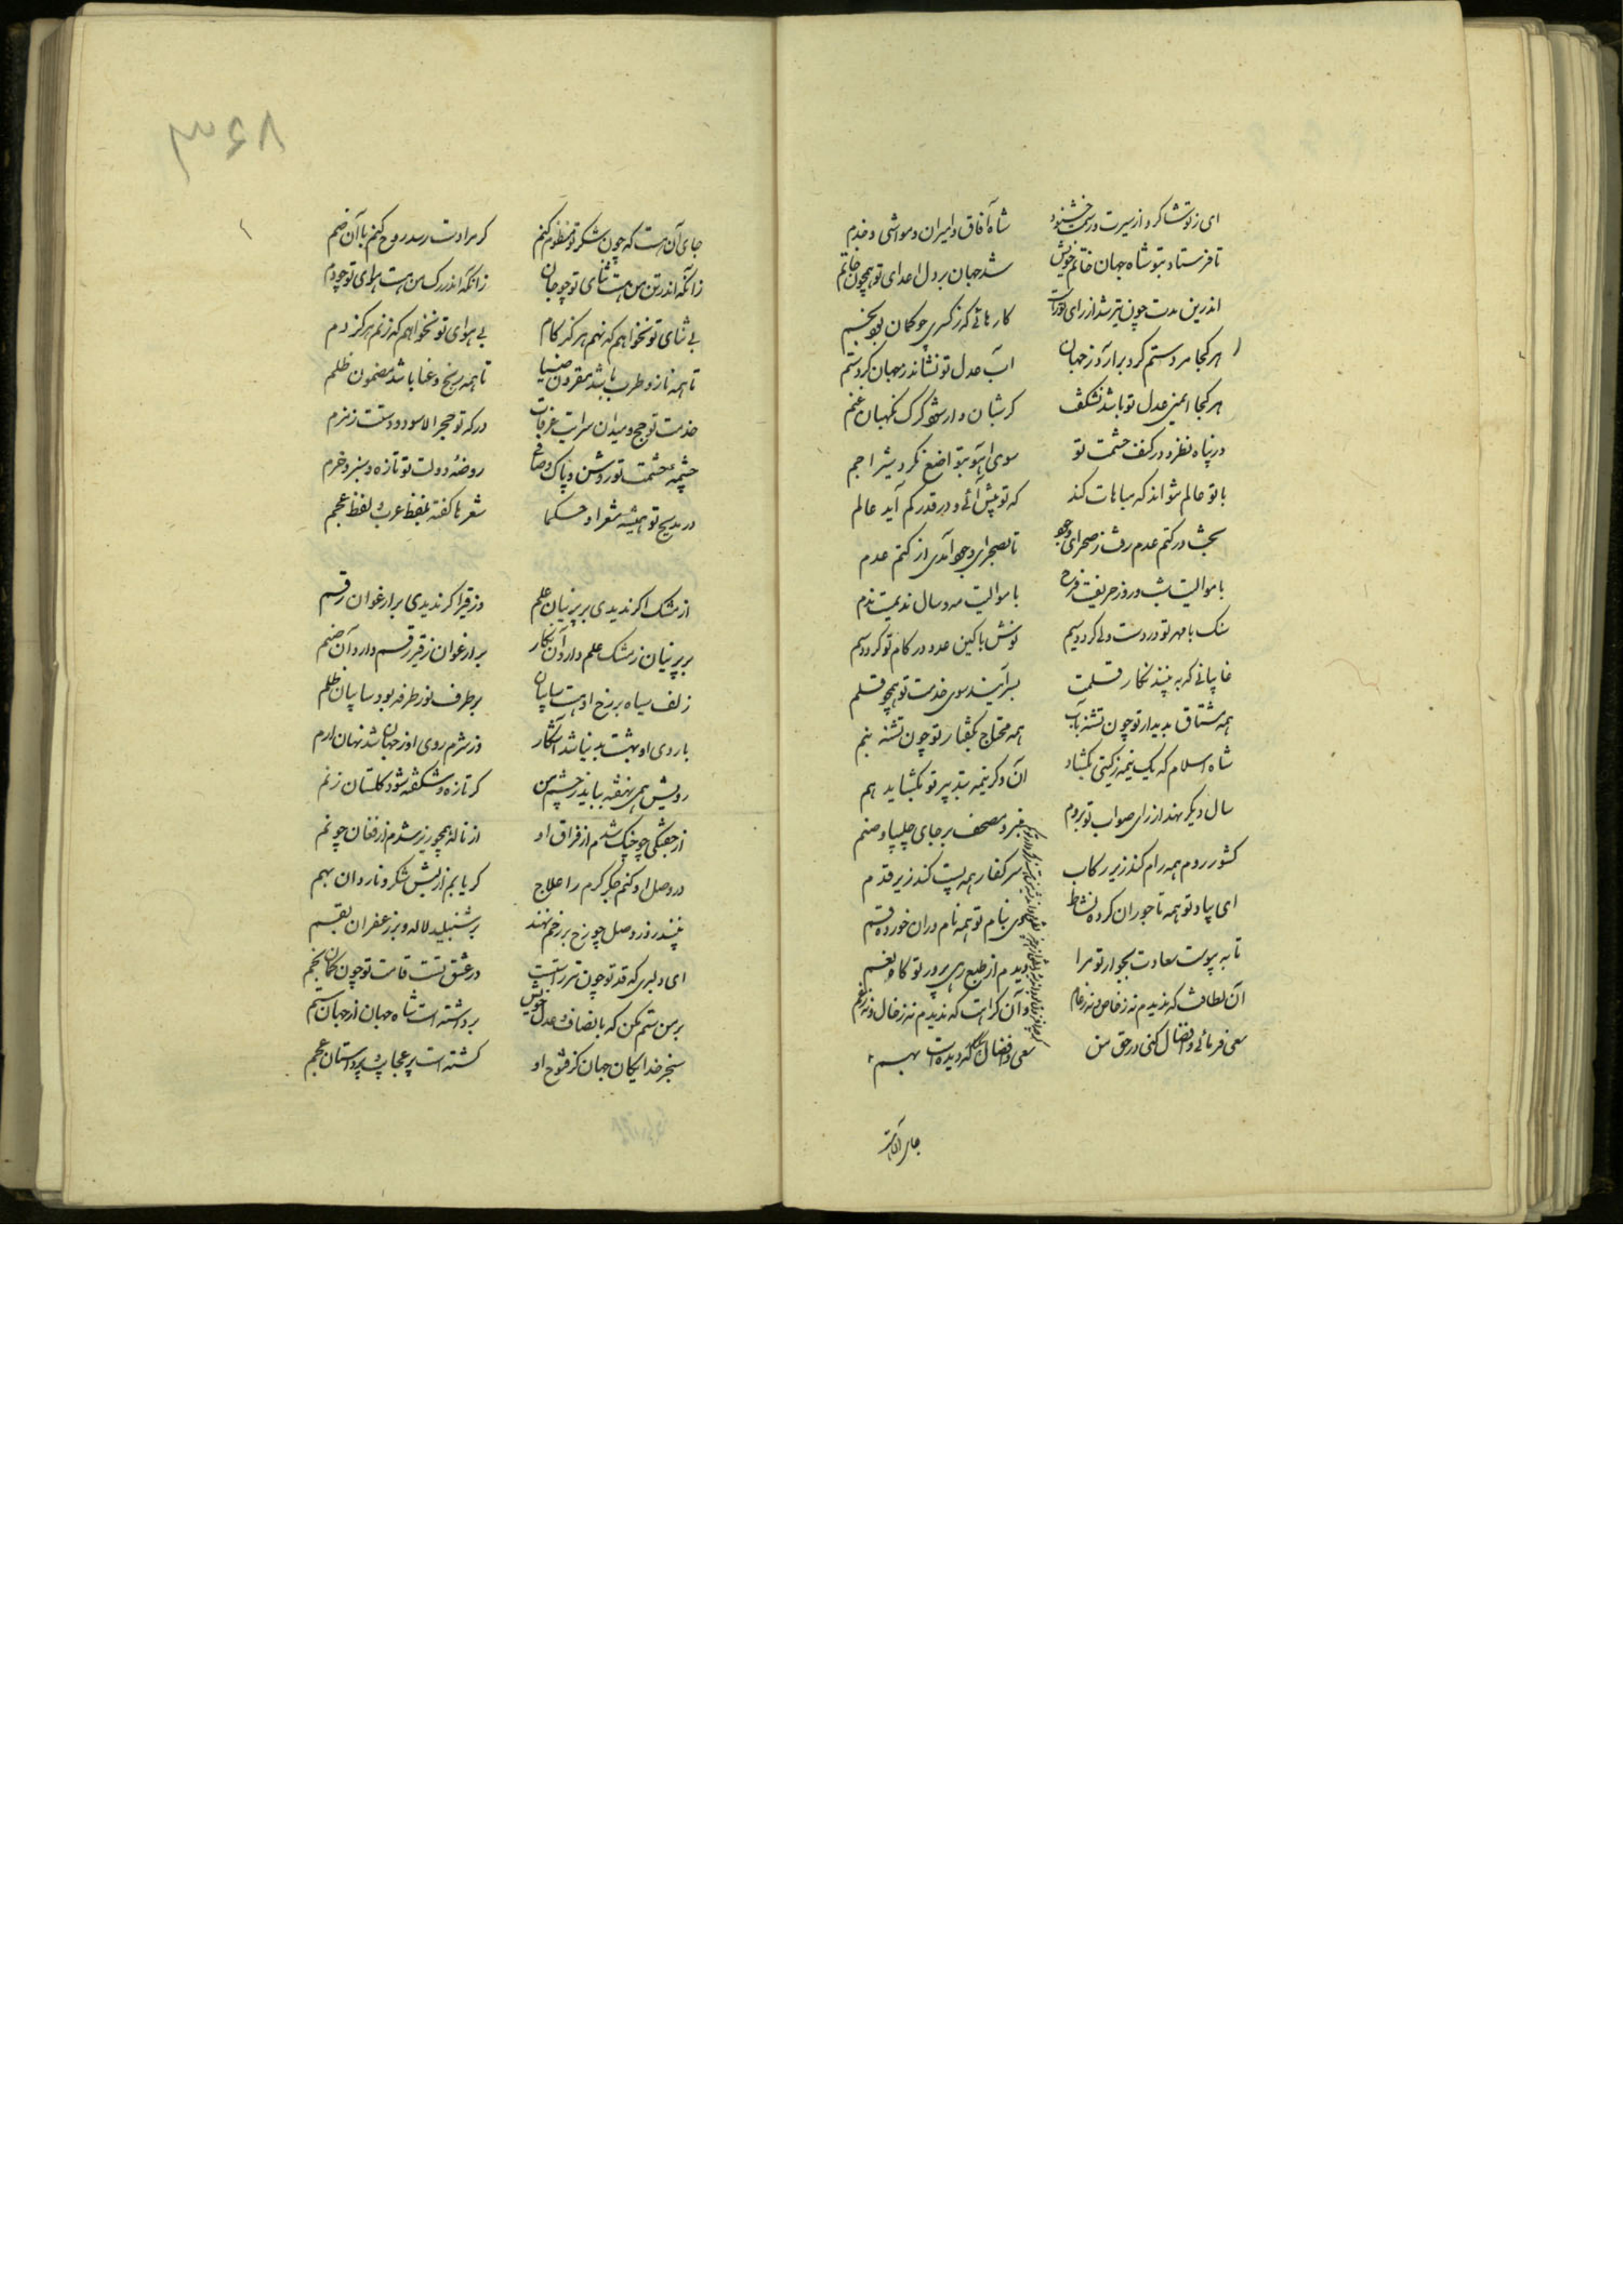 ای ز تو شاکر و از سیرت و رسمت خشنود شاه آفاق و امیران و مواشی و خدم
تا فرستاد بتو شاه جهان خاتم خویش شد جهان بر دل اعدای تو همچون خاتم
اندرین مدت چون تیر شد از رای تو راست کارهائی که ز کسری چو کمان بود بخم
هر کجا مرد ستم کرد برآرد ز جهان آب عدل تو نشاند ز جهان کرد ستم
هر کجا ایمنی عدل تو باشد نشکفت کر شبان وار شود کرک نکهبان غنم
در پناه نظر و در کنف حشمت تو سوی آهو بتواضع نکرد شیر اجم
با تو عالم نتواند که مباهات کند که تو بیش آئی و در قدر کم آید عالم
بخل در کتم عدم رفت ز صحرای وجود تا بصحرای وجود آمدی از کتم عدم
با موالیت شب و روز حریفست فرح با موالیت مه و سال ندیمست ندم
سنک با مهر تو در دست ولی کردد سیم نوش با کین عدو در کام تو کردد سم
غایبانی که به بینند نکار قلمت بسر آیند سوی خدمت تو همچو قلم
همه مشتاق بدیدار تو چون تشنه بآب همه محتاج بکفتار تو چون تشنه بنم
شاه اسلام که یک نیمه ز کیتی بکشاد آن دکر نیمه بتدبیر تو بکشاید هم
سال دیکر نهد از رای صواب تو بروم منبر و مصحف بر جای چلیپا و صنم
کشور روم همه رام کند زیر رکاب سر کفار همه پست کند زیر قدم
ای بیاد تو همه تاجوران کرده نشاط وی بنام تو همه نام وران خورده قسم
تا به پیوست سعادت بجوار تو مرا دیدم از طبع رهی پرور تو کان نعم
آن لطافت که ندیدم نه ز خاص و نه ز عام وآن کرامت که ندیدم نه ز خال و نه ز عم
سعی فرمائی و افضال کنی در حق من سعی و افضال که دیده است بهم
جای آن است
۸۶۳
جای آن هست که چون شکر تو منظوم کنم کر مرادت رسد روح کنم با آن ضم
زانکه اندر تن من هست ثنای تو چو جان زانکه اندر رک من هست هوای تو چو دم
بی ثنای تو نخواهم که نهم هرکز کام بی هوای تو نخواهم که زنم هرکز دم
تا همه ناز و طرب باشد مقرون ضیا تا همه رنج و عنا باشد مضمون ظلم
خدمت تو حج و میدان سرایت عرفات درکه تو حجر الاسود و دستت زمزم
چشمه حشمت تو روشن و پاک و صافی روضه دولت تو تازه و سبز و خرم
در مدیح تو همیشه شعرا و حکما شعرها کفته بلفظ عرب و لفظ عجم
از مشک اکر ندیدی بر پرنیان علم وز قیر اکر ندیدی بر ارغوان رقم
بر پرنیان ز مشک علم دارد آن نکار بر ارغوان ز قیر رقم دارد آن صنم
زلف سیاه بر رخ او هست سایبان بر طرف نور طرفه بود سایبان ظلم
با روی او بهشت بدنیا شد آشکار وز شرم روی او ز جهان شد نهان ارم
رویش همی بنفشه بباید ز چشم من کر تازه و شکفته شود کلستان ز نم
از خشکی چو چنک شدم از فراق او از ناله همچو زیر شدم از فغان چو نم
در وصل او کنم جکر کرم را علاج کر یابم از لبش شکر و ناردان بهم
بینند روز وصل چو رخ بر رخم نهند بر شنبلید لاله و بر زعفران بقم
ای دلبری که قد تو چون تیر راستست در عشق تست قامت تو چون کمان بخم
بر من ستم مکن که بانصاف و عدل خویش برداشته است شاه جهان از جهان ستم
سنجر خدایکان جهان کز فتوح او کشته است پر عجایب پر داستان عجم